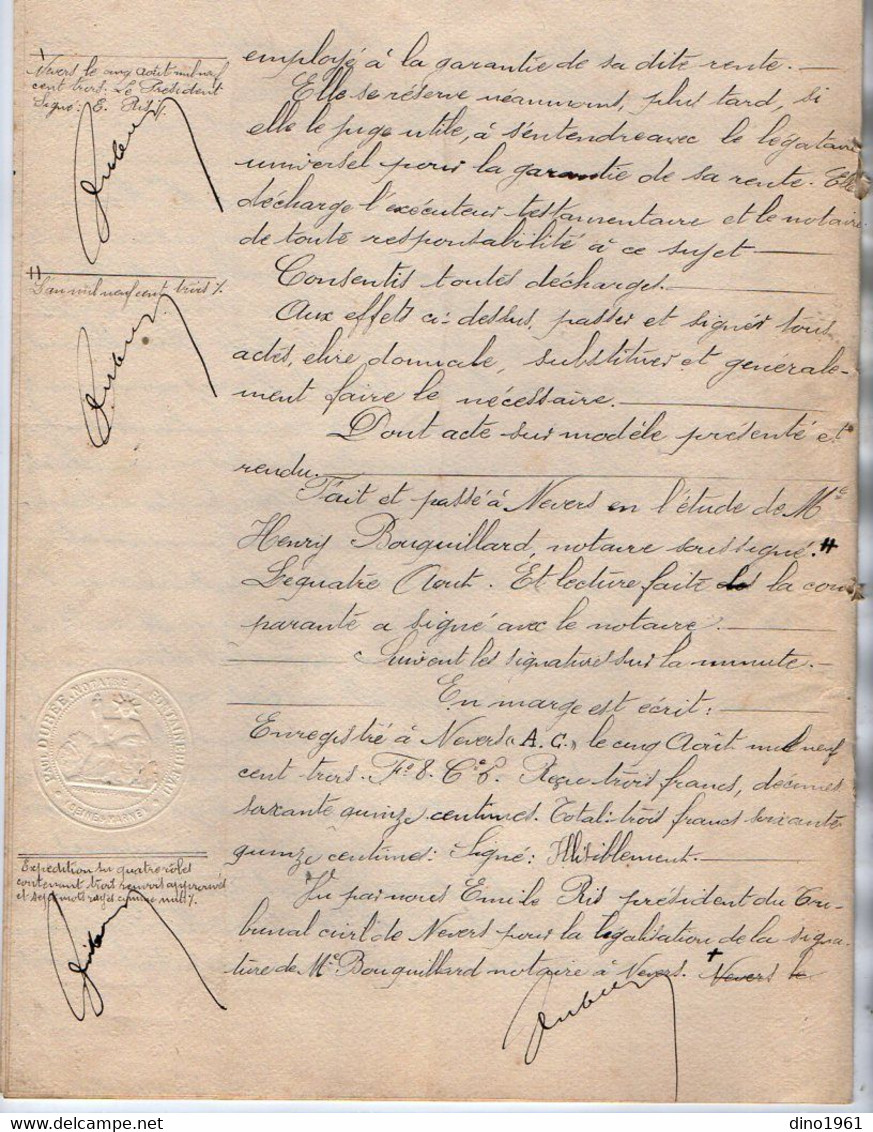 +
Nevers le cinq Août mil neuf
cent trois. Le Président
Signé: E. Ris /.
H
L'an mil neuf cent trois /.
employé à la garantie de sa dite rente.
Elle se réserve néanmoins, plus tard, si
elle le juge utile, à s'entendre avec le légataire
universel pour la garantie de sa rente. Elle
décharge l'exécuteur testamentaire et le notaire
de toute responsabilité à ce sujet
Consentir toutes décharges.
Aux effets ci-dessus, passer et signer tous
actes, elire domicile, substituer et générale-
ment faire le nécessaire.
Dont acte sur modèle présenté et
rendu.
Fait et passé à Nevers en l'étude de Me
Henry Bouquillard, notaire soussigné. H
Le quatre Aout. Et lecture faite la com
parante a signé avec le notaire.
Suivent les signatures sur la minute.
En marge est écrit:
Enregistré à Nevers (A.C.) le cinq Août mil neuf
cent trois. Fo 8. Ce 6. Reçu trois francs, décimes
soixante quinze centimes. Total: trois francs soixante
quinze centimes: Signé: Illisiblement.
Vu par nous Emile Ris président du Tri-
bunal civil de Nevers pour la légalisation de la signa-
ture de Me Bouquillard notaire à Nevers. + Nevers le
PAUL DURÉE, NOTAIRE À FONTAINEBLEAU
(SEINE & MARNE)
Expédition en quatre rôles
contenant trois renvois approuvés
et sept mots rayés comme nuls /.
dino1961